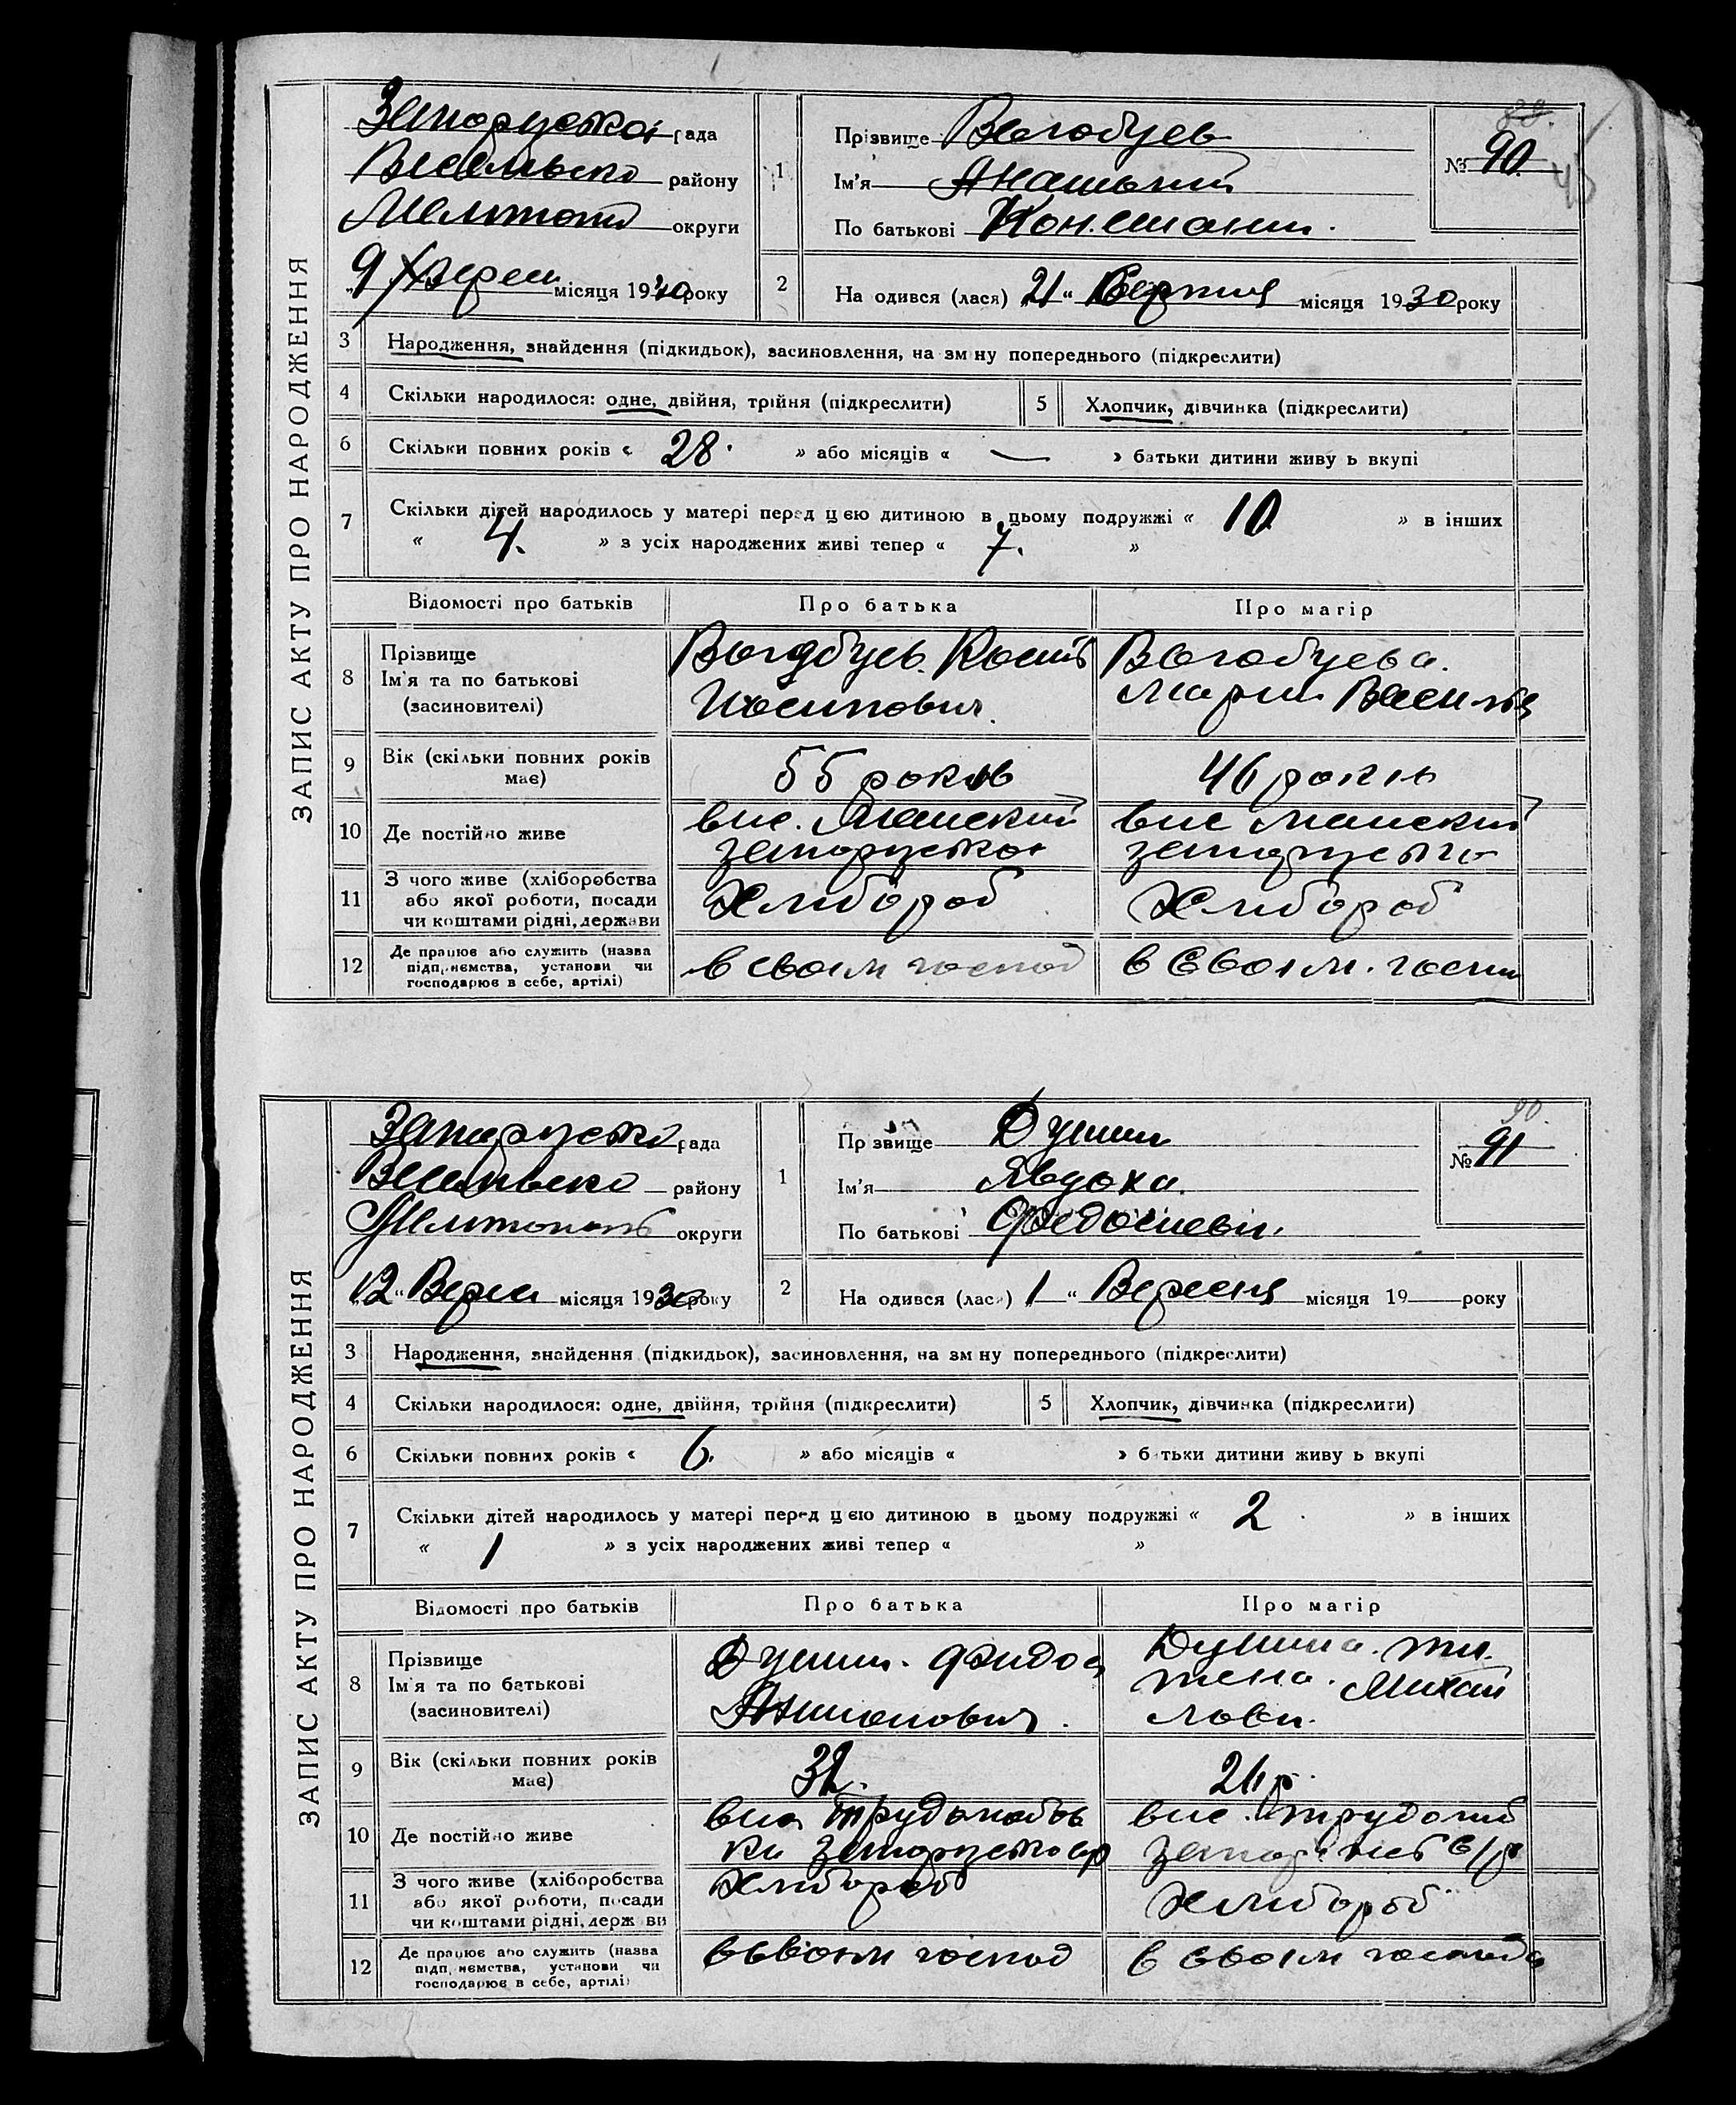 ЗАПИС АКТУ ПРО НАРОДЖЕННЯ
Запоруської рада
Весельсько району
Мелитопо округи
9 Верес місяця 1930 року
1
Прізвище
Ім'я Анатолий
По батькові Констант.
№ 90
2
На одився (лася) 21 „ Серпня місяця 1930 року
3 Народження, знайдення (підкидьок), засиновлення, на зм ну попереднього (підкреслити)
4 Скільки народилося: одне, двійня, трійня (підкреслити)
5 Хлопчик, дівчинка (підкреслити)
6 Скільки повних років « 28. » або місяців « — » батьки дитини живу ь вкупі
7 Скільки дітей народилось у матері перед цією дитиною в цьому подружжі « 10 » в інших
« 4. » з усіх народжених живі тепер « 7. »
Відомості про батьків Про батька Про матір
8 Прізвище
Ім'я та по батькові
(засиновителі)
Иосипович.
Мария
9 Вік (скільки повних років має) 55 років 46 років
10 Де постійно живе
вис. Маиский вис Маиский
запоруской
11 З чого живе (хліборобства або якої роботи, посади чи коштами рідні, держави
Хлибороб Хлибороб
12 Де працює або служить (назва підприємства, установи чи господарює в себе, артілі)
в своїм господ в своїм. госпо
ЗАПИС АКТУ ПРО НАРОДЖЕННЯ
Запорусько рада
Весельсько району
Мелитополь округи
12 „ Верес місяця 1930 року
1
Пр звище
Ім'я Явдоха.
По батькові Федосиевн.
90
№ 91
2
На одився (лася) 1 „ Вересня місяця 19 — року
3 Народження, знайдення (підкидьок), засиновлення, на зм ну попереднього (підкреслити)
4 Скільки народилося: одне, двійня, трійня (підкреслити)
5 Хлопчик, дівчинка (підкреслити)
6 Скільки повних років « 6. » або місяців « » б тьки дитини живу ь вкупі
7 Скільки дітей народилось у матері перед цією дитиною в цьому подружжі « 2 » в інших
« 1 » з усіх народжених живі тепер « »
Відомості про батьків Про батька Про матір
8 Прізвище
Ім'я та по батькові
(засиновителі)
Михай
ловн.
9 Вік (скільки повних років має)
10 Де постійно живе
11 З чого живе (хліборобства або якої роботи, посади чи коштами рідні, держ ви
Хлибороб Хлибороб
12 Де працює або служить (назва підп иємства, установи чи господарює в себе, артілі)
в своїм господ в своїм господа